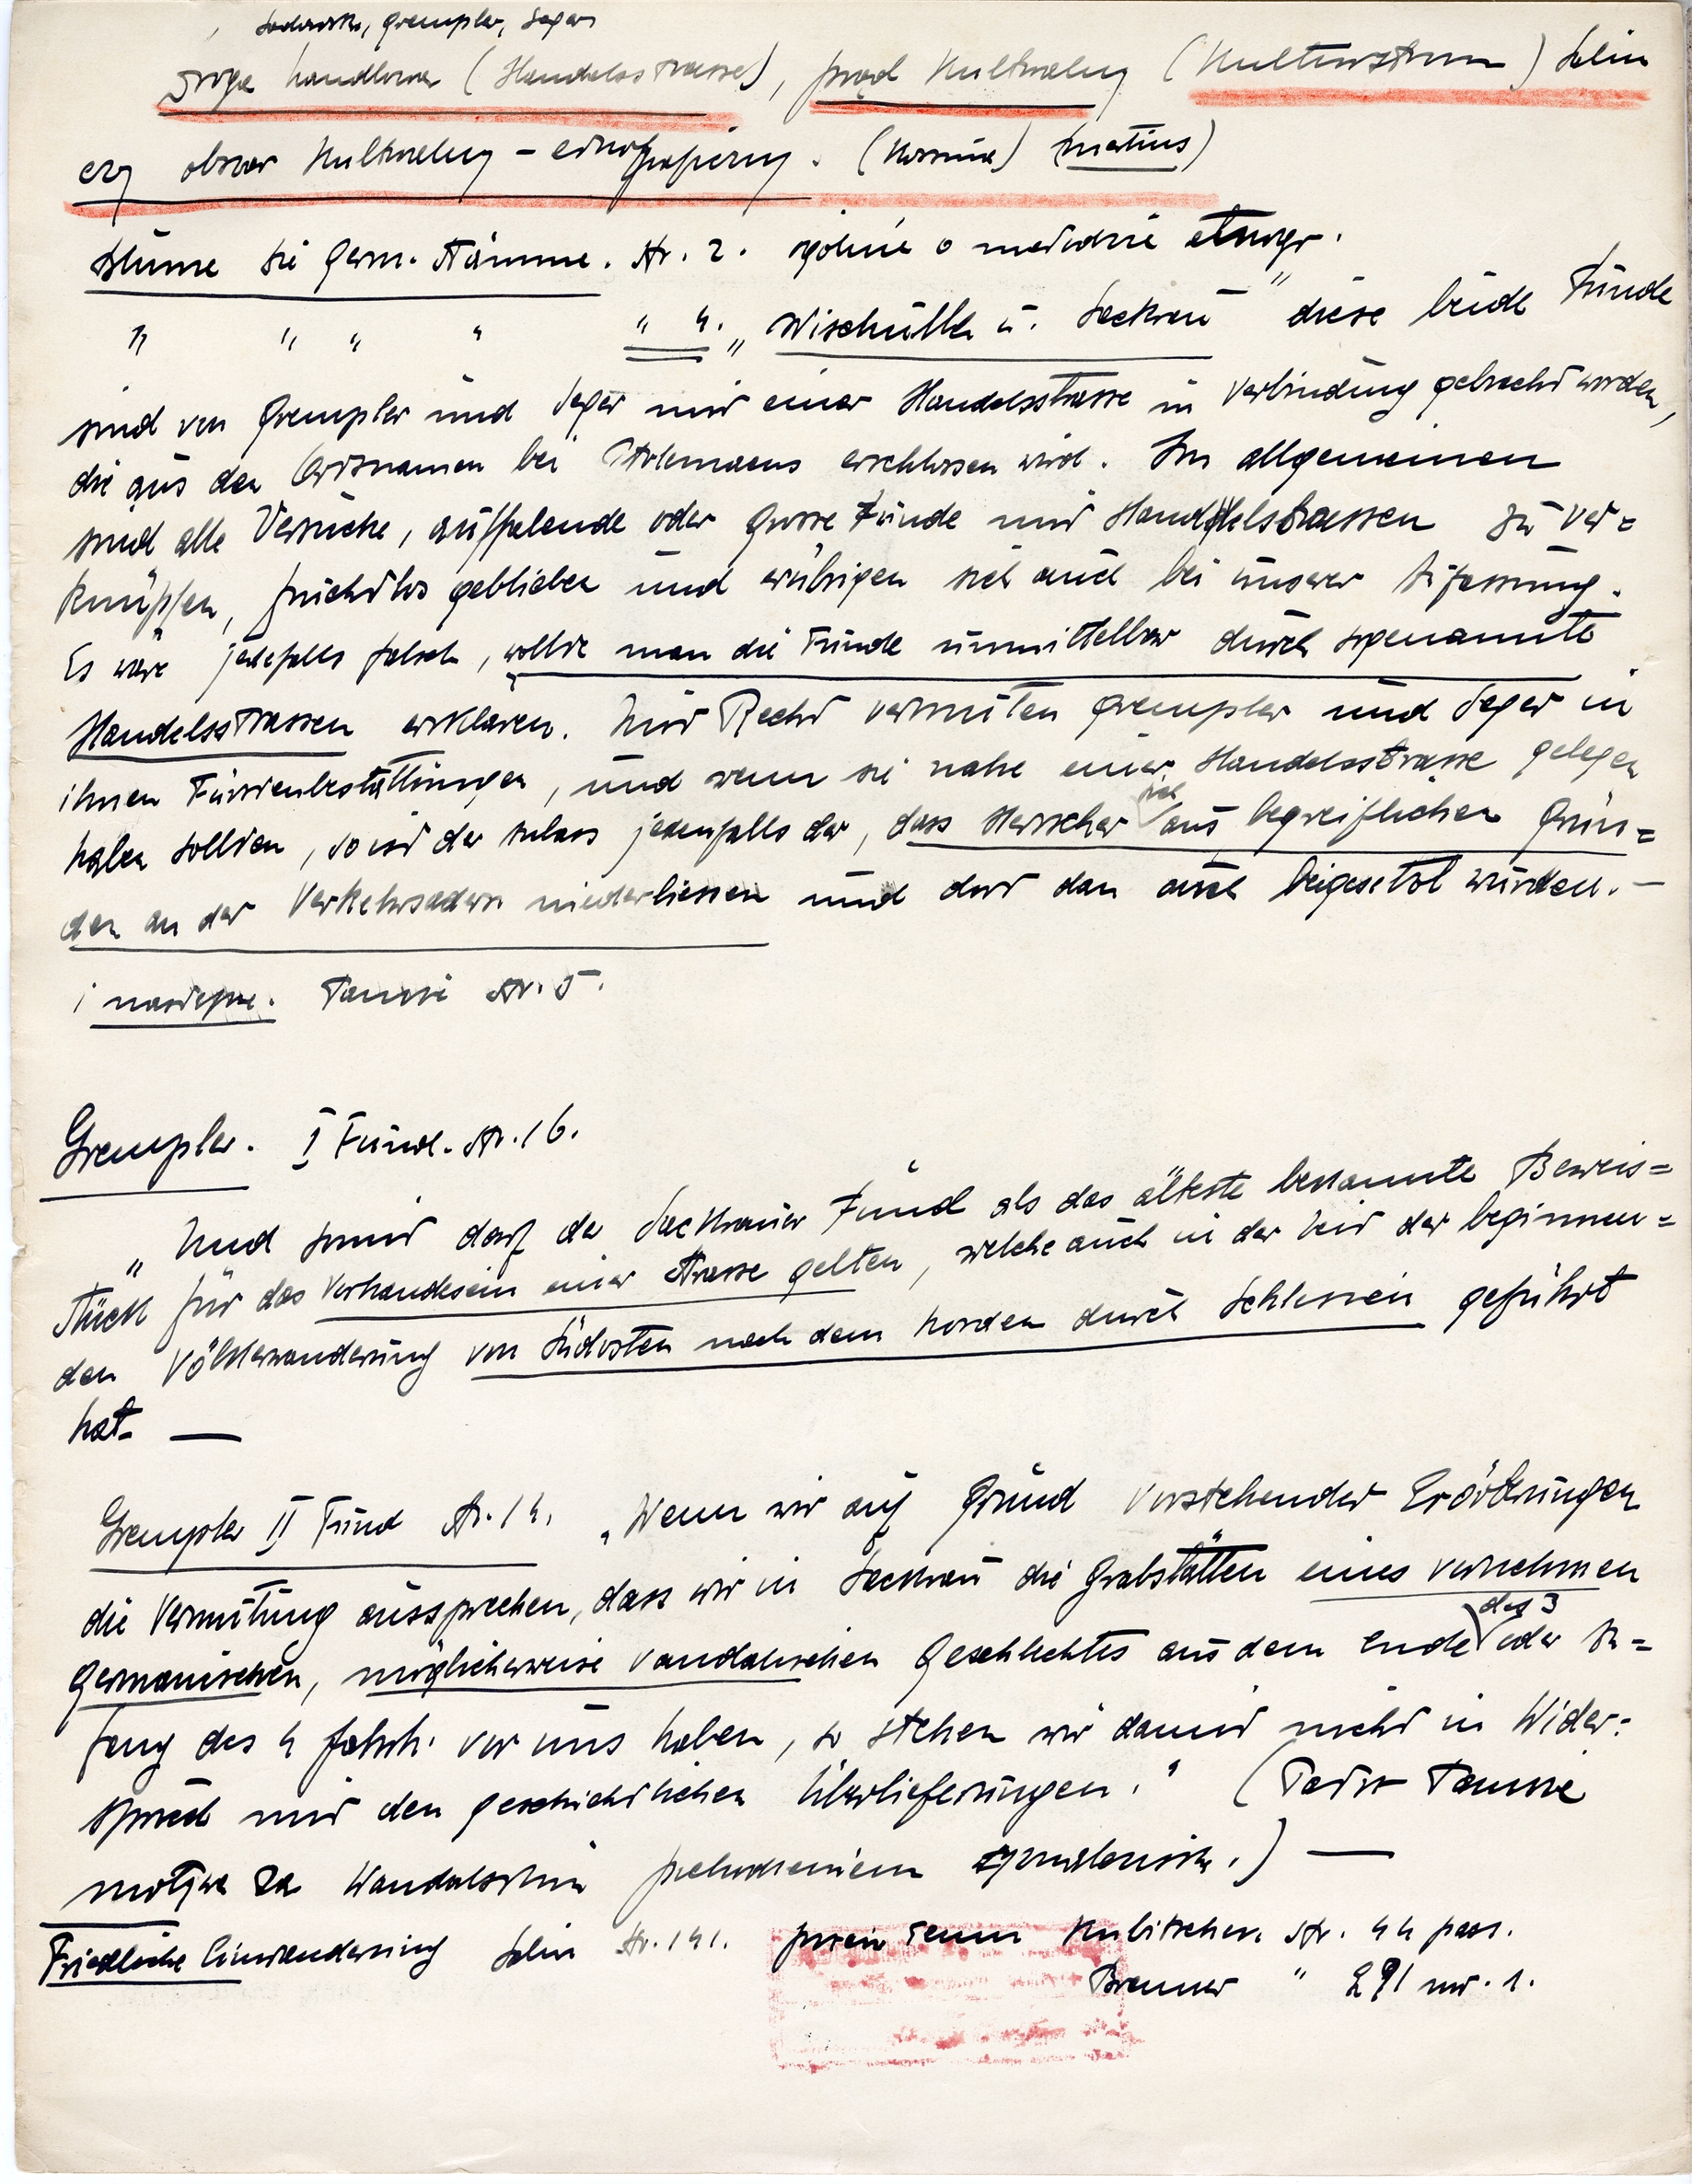 Sadowski, Grempler, Seger
Droga handlowa (Handelsstrasse), prąd kulturalny (Kulturstrom) Salin
czy obszar kulturalny – etnograficzny. (Kossina) (Martius)
Blume die Germ. Stämme. Str. 2. ogólnie o metodzie etnogr.
" " " " " 4. „Wischulle u. Sackrau" diese beide Funde
sind von Grempler und Seger mit einer Handelsstrasse in Verbindung gebracht worden,
die aus den Ortsnamen bei Ptolemaeus erschlossen wird. Im allgemeinen
sind alle Versuche, auffalende oder grosse Funde mit Handelsstrassen zu ver=
knüpfen, fruchtlos geblieben und erübrigen sich auch bei unserer Aufassung.
Es wäre jedefalls falsch, wollte man die Funde unmittelbar durch sogenannte
Handelsstrassen erklären. Mit Recht vermuten Grempler und Seger in
ihnen Fürstenbestattungen, und wenn sie nahe einer Handelsstrasse gelegen
haben sollten, so ist der Anlass jedenfalls der, dass Herrscher sich aus begreiflichen Grün=
den an der Verkehrsadern niederliessen und dort dan auch beigesetzt wurden. –
i następne. Tamże Str. 5.
Grempler. I Fund. Str. 16.
„Und somit darf der Sackrauer Fund als das älteste bekannte Beweis=
stück für das Vorhandesein einer Strasse gelten, welche auch in der Zeit der beginnen=
den Völkerwanderung von Südosten nach dem Norden durch Schlesien geführt
hat. —
Grempler II Fund Str. 14. „Wenn wir auf Grund vorstehender Erörterungen
die Vermutung aussprechen, dass wir in Sackrau die Grabstätten eines vornehmen
Germanischen, möglicherweise vandalischen Geschlechtes aus dem Ende des 3 oder An=
fang des 4 Jahrh. vor uns haben, so stehen wir damit nicht in Wider=
spruch mit den geschichtlichen Überlieferungen." (Patrz Tamże
motywa za Wandalskim pochodzeniem .) —
Friedliche Einwanderung Salin Str. 141. przeciw temu Kubitschek. Str. 44 pass.
Brenner " 291 nr. 1.